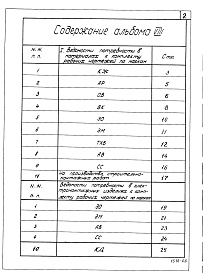 2
Содержание альбома VIII
N.N. п.п.
I. Ведомости потребности в
материалах к комплекту
рабочих чертежей по маркам
Стр.
1 КЖ 3
2 АР 5
3 ОВ 6
4 ВК 8
5 ЭО 10
6 ЭМ 11
7 ТХВ 12
8 АВ 14
9 СС 16
на производство строительно-
монтажных работ 17
N.N. п.п.
Ведомости потребности в элек-
тромонтажных изделиях к ком-
плекту рабочих чертежей по маркам
ЭО 19
ЭМ 21
АВ 23
СС 24
КЖ 25